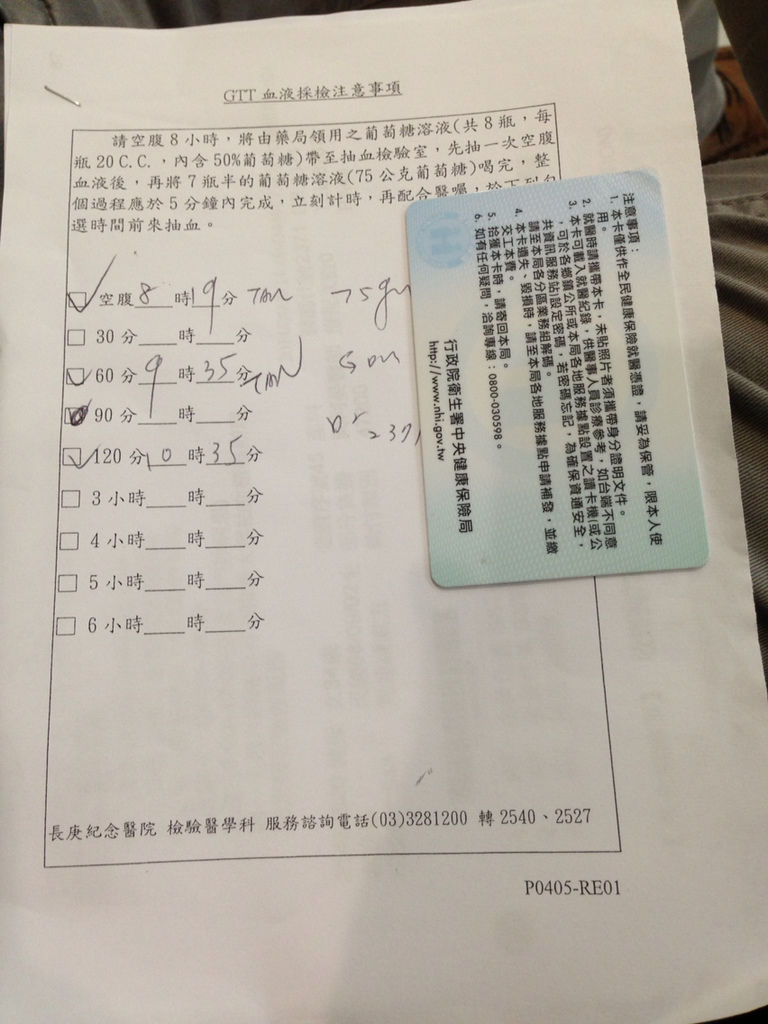 GTT 血液採檢注意事項
請空腹 8 小時，將由藥局領用之葡萄糖溶液(共 8 瓶，每
瓶 20 C.C.，內含 50%葡萄糖)帶至抽血檢驗室，先抽一次空腹
血液後，再將 7 瓶半的葡萄糖溶液(75 公克葡萄糖)喝完，整
個過程應於 5 分鐘內完成，立刻計時，再配合醫囑，於下列勾
選時間前來抽血。
空腹 8 時 19 分
30 分____時____分
60 分 9 時 35 分
90 分____時____分
120 分 10 時 35 分
3 小時____時____分
4 小時____時____分
5 小時____時____分
6 小時____時____分
長庚紀念醫院 檢驗醫學科 服務諮詢電話(03)3281200 轉 2540、2527
P0405-RE01
注意事項：
1. 本卡僅供作全民健康保險就醫憑證，請妥為保管，限本人使
用。
2. 就醫時請攜帶本卡，未貼照片者須攜帶身分證明文件。
3. 本卡可載入就醫紀錄，供醫事人員診療參考，如台端不同意
，可於各鄉鎮公所或本局各地服務據點設置之讀卡機(或公
共資訊服務站)設定密碼，若密碼忘記，為確保資通安全，
請至本局各分區業務組解碼。
4. 本卡遺失、毀損時，請至本局各地服務據點申請補發，並繳
交工本費。
5. 拾獲本卡時，請寄回本局。
6. 如有任何疑問，洽詢專線：0800-030598。
行政院衛生署中央健康保險局
http://www.nhi.gov.tw